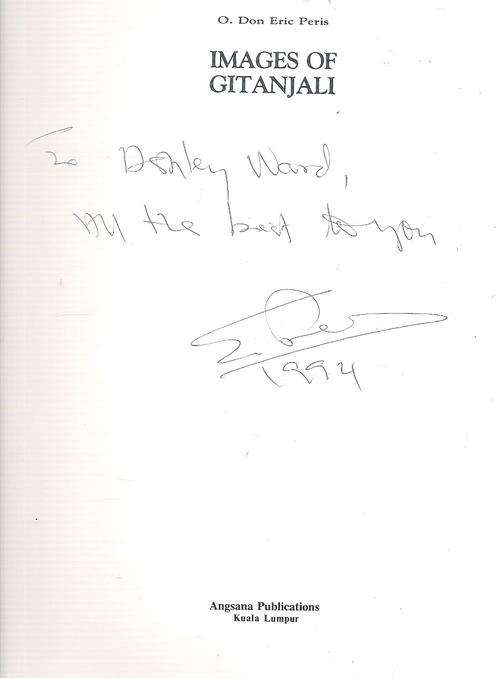 O. Don Eric Peris
IMAGES OF
GITANJALI
To Ashley Ward,
All the best to you
1994
Angsana Publications
Kuala Lumpur